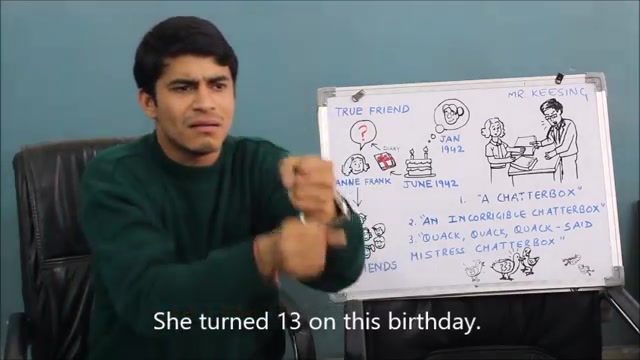 TRUE FRIEND
MR. KEESING
?
DIARY
JAN
1942
ANNE FRANK
JUNE 1942
1. "A CHATTERBOX"
2. "AN INCORRIGIBLE CHATTERBOX"
3. "QUACK, QUACK, QUACK - SAID
MISTRESS CHATTERBOX"
She turned 13 on this birthday.